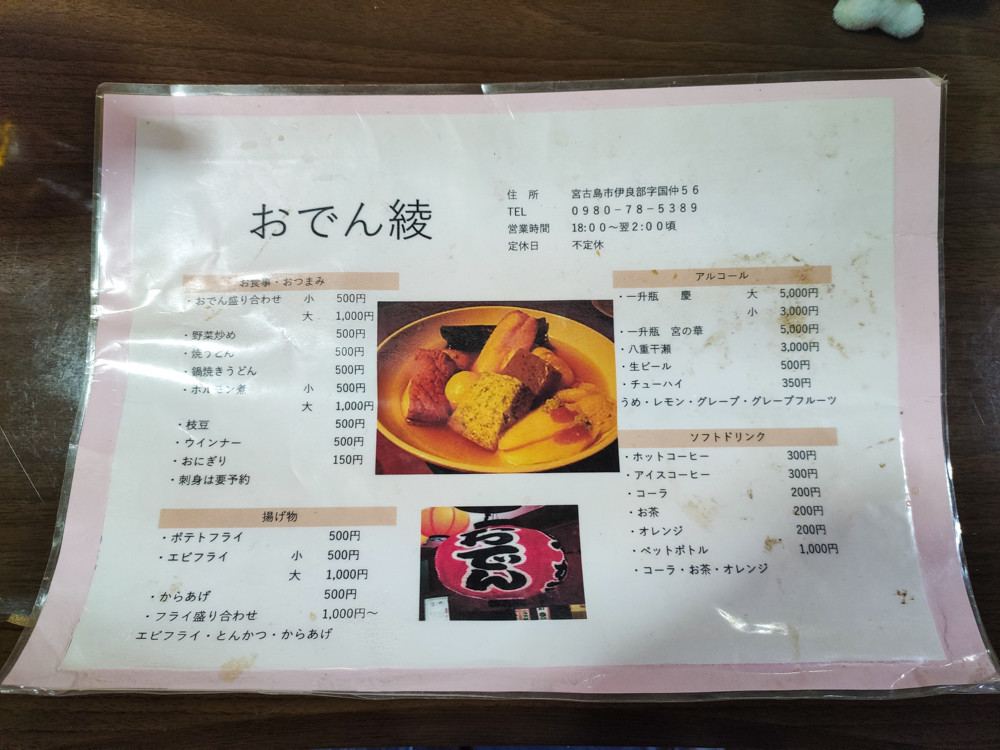 おでん綾
住　所　宮古島市伊良部字国仲５６
TEL　０９８０－７８－５３８９
営業時間　18:００～翌2:００頃
定休日　不定休
お食事・おつまみ
・おでん盛り合わせ　小　500円
大　1,000円
・野菜炒め　500円
・焼うどん　500円
・鍋焼きうどん　500円
・ホルモン煮　小　500円
大　1,000円
・枝豆　500円
・ウインナー　500円
・おにぎり　150円
・刺身は要予約
揚げ物
・ポテトフライ　500円
・エビフライ　小　500円
大　1,000円
・からあげ　500円
・フライ盛り合わせ　1,000円～
エビフライ・とんかつ・からあげ
アルコール
・一升瓶　慶　大　5,000円
小　3,000円
・一升瓶　宮の華　5,000円
・八重干瀬　3,000円
・生ビール　500円
・チューハイ　350円
うめ・レモン・グレープ・グレープフルーツ
ソフトドリンク
・ホットコーヒー　300円
・アイスコーヒー　300円
・コーラ　200円
・お茶　200円
・オレンジ　200円
・ペットボトル　1,000円
・コーラ・お茶・オレンジ
おでん